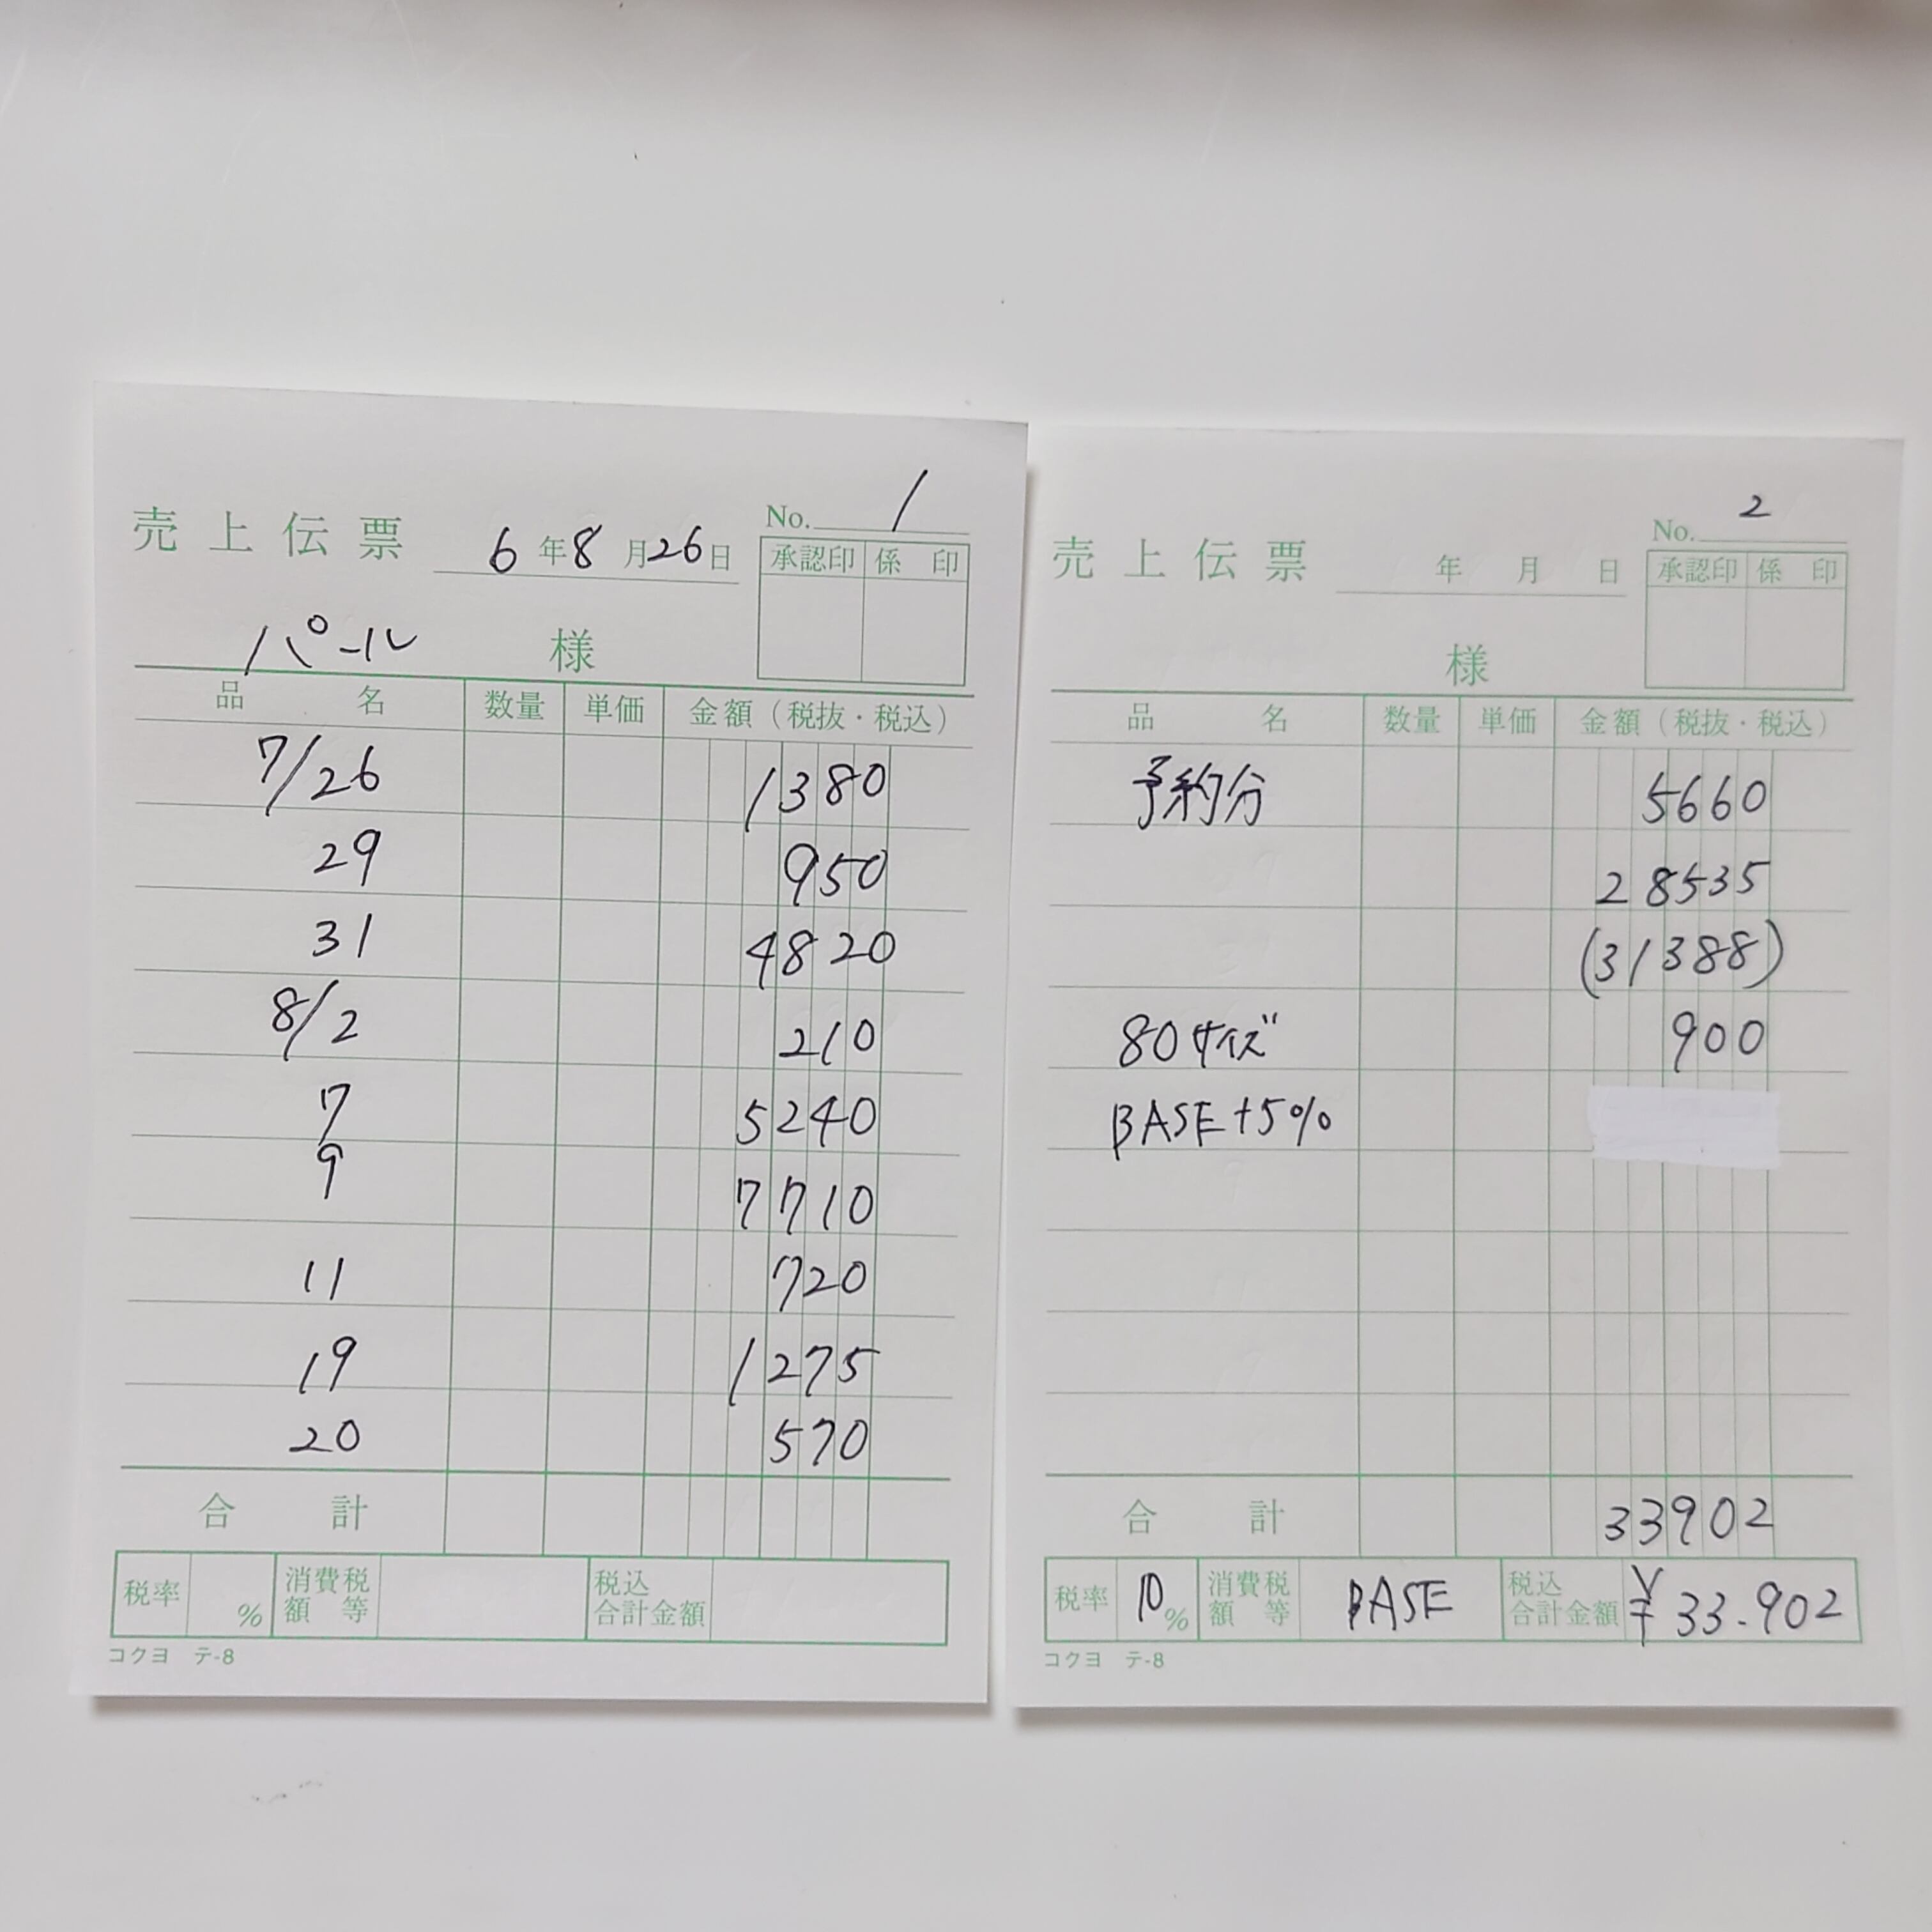 売上伝票 6年8月26日 No. 1
承認印 係印
パール 様
品名 数量 単価 金額（税抜・税込）
7/26 1380
29 950
31 4820
8/2 210
7 5240
9 7710
11 720
19 1275
20 570
合計
税率 % 消費税額等 税込合計金額
コクヨ テ-8
売上伝票 年 月 日 No. 2
承認印 係印
様
品名 数量 単価 金額（税抜・税込）
予約分 5660
28535
(31388)
80サイズ 900
BASE+5%
合計 33902
税率 10% 消費税額等 BASE 税込合計金額 ¥33.902
コクヨ テ-8